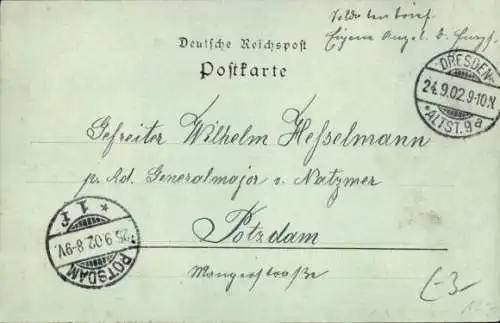 Soldatenbrief.
Eigene Angel. d. Empf.
Deutsche Reichspost
Postkarte
DRESDEN
24.9.02.9-10.N
*ALTST.9a
Gefreiter Wilhelm Hesselmann
p. Ad. Generalmajor v. Natzmer
Potzdam
Mangerstraße
POTSDAM
25.9.02.8-9V.
* 1 f
(-3